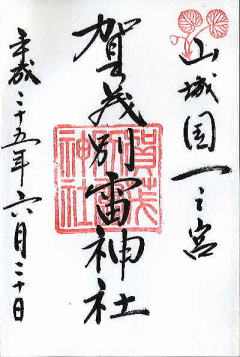 山城国一之宮
賀茂別雷神社
平成二十五年六月二十日
賀茂別雷神社